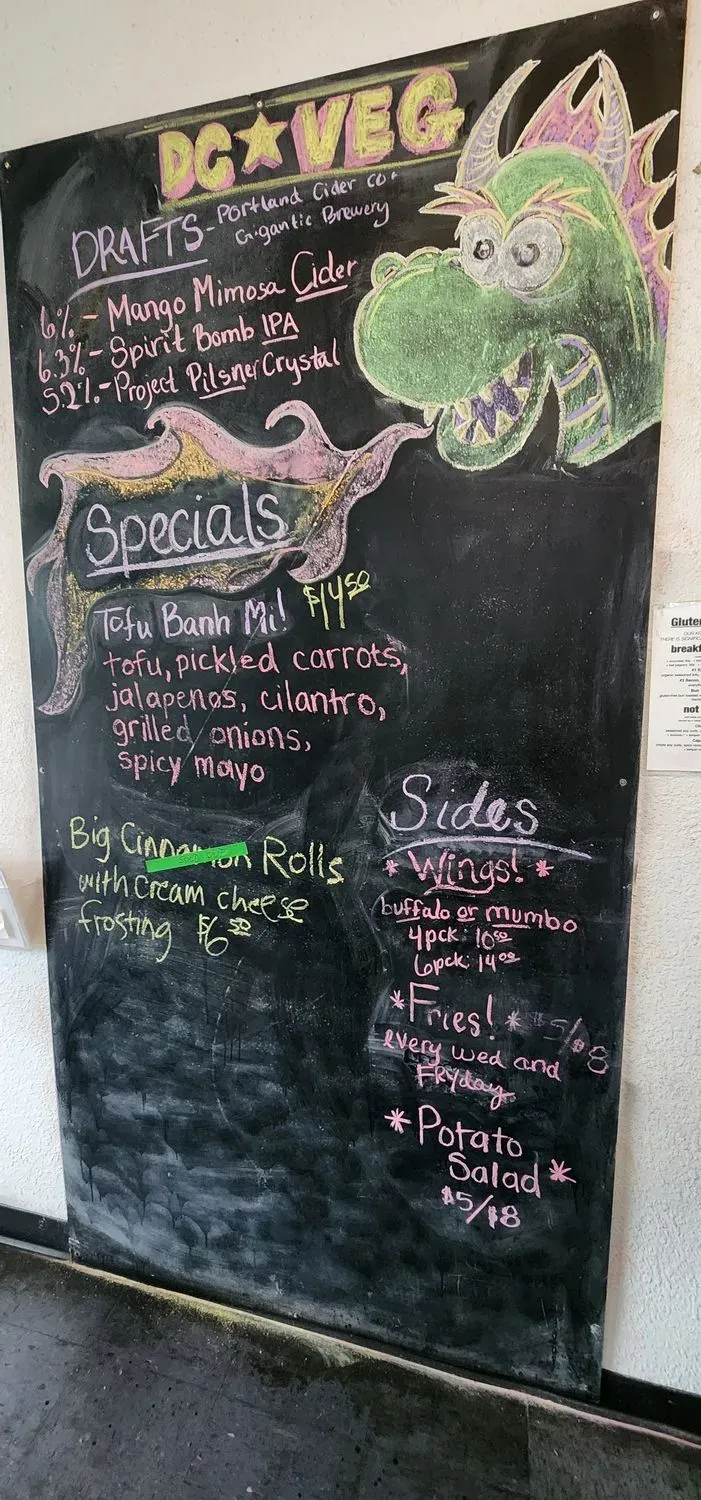 DC★VEG
DRAFTS- Portland Cider Co+
Gigantic Brewery
6% - Mango Mimosa Cider
6.3% - Spirit Bomb IPA
5.2% - Project Pilsner Crystal
Specials
Tofu Banh Mi! $14.50
tofu, pickled carrots,
jalapenos, cilantro,
grilled onions,
spicy mayo
Big Cinnamon Rolls
with cream cheese
frosting $6.50
Sides
*Wings!*
buffalo or mumbo
4pck: 10.50
6pck: 14.00
*Fries!* $5/$8
every wed and
FRYday
*Potato
Salad*
$5/$8
Glute
breakf
not